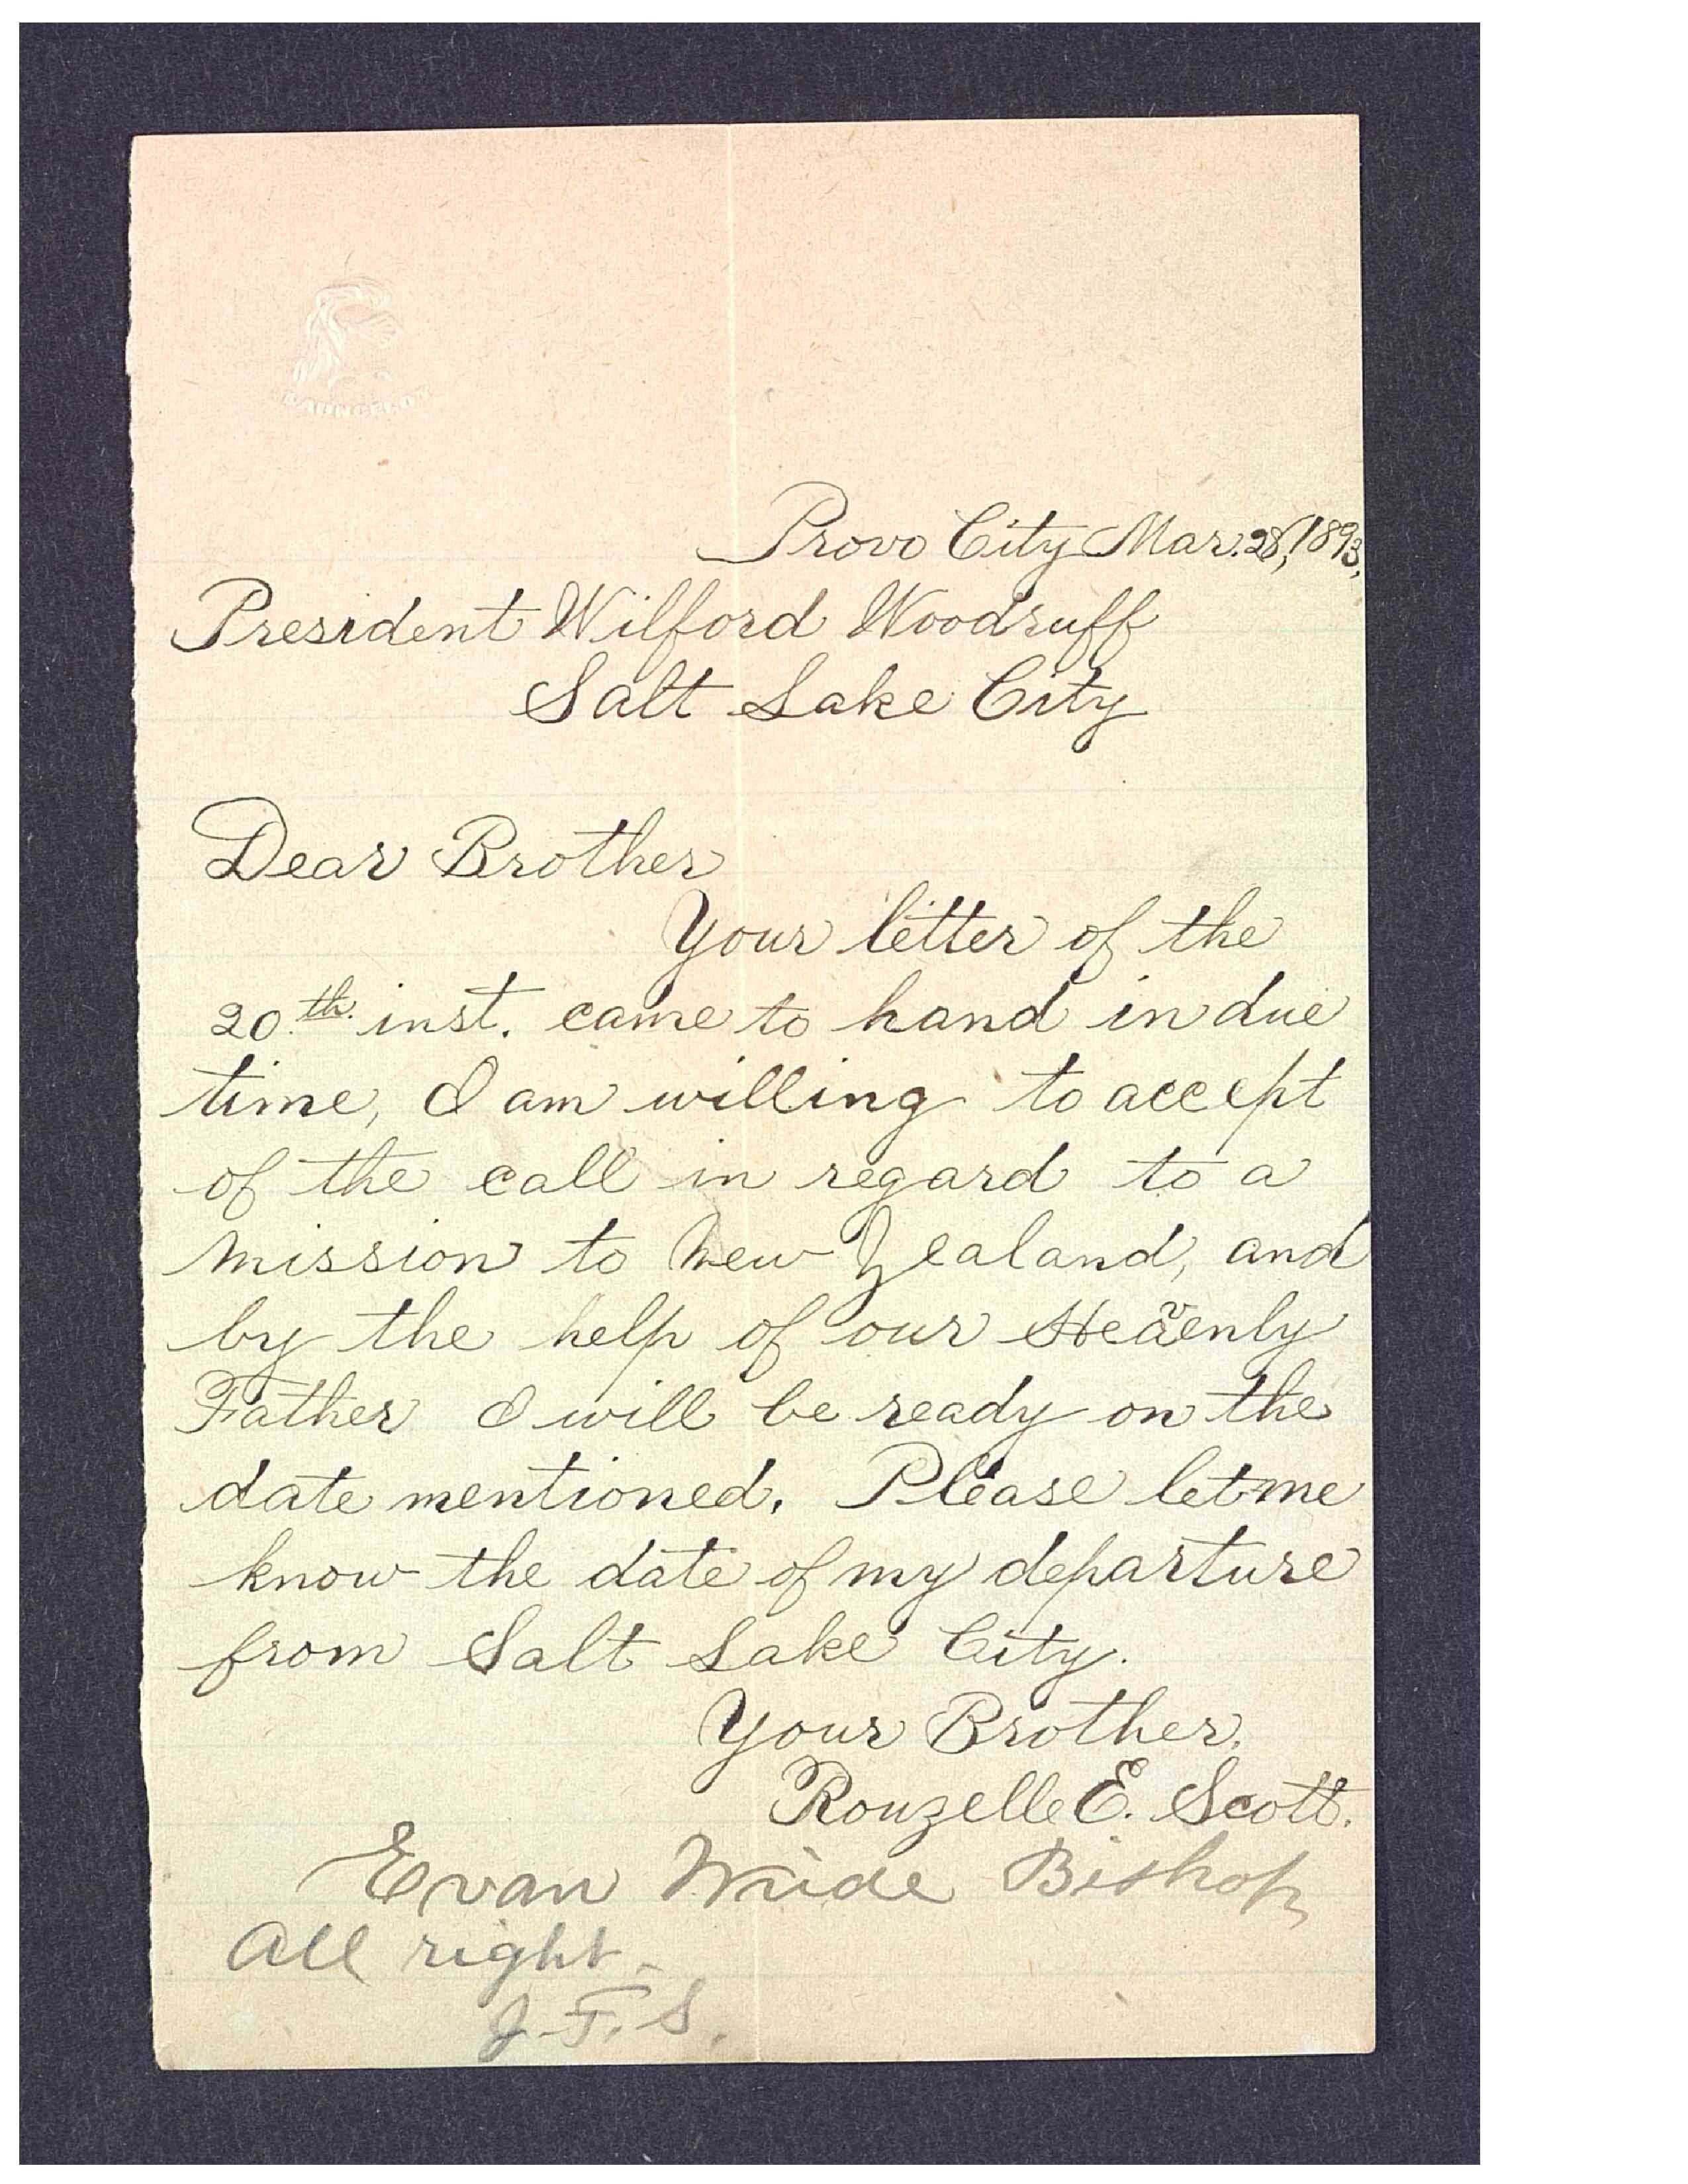 LAUNCELOT
Provo City Mar. 28, 1893,
President Wilford Woodruff
Salt Lake City
Dear Brother
Your letter of the
20th. inst. came to hand in due
time, I am willing to accept
of the call in regard to a
mission to New Zealand, and
by the help of our Heavenly
Father I will be ready on the
date mentioned. Please let me
know the date of my departure
from Salt Lake City.
Your Brother.
Rouzelle E. Scott.
Evan Bishop
All right.
J. F. S.